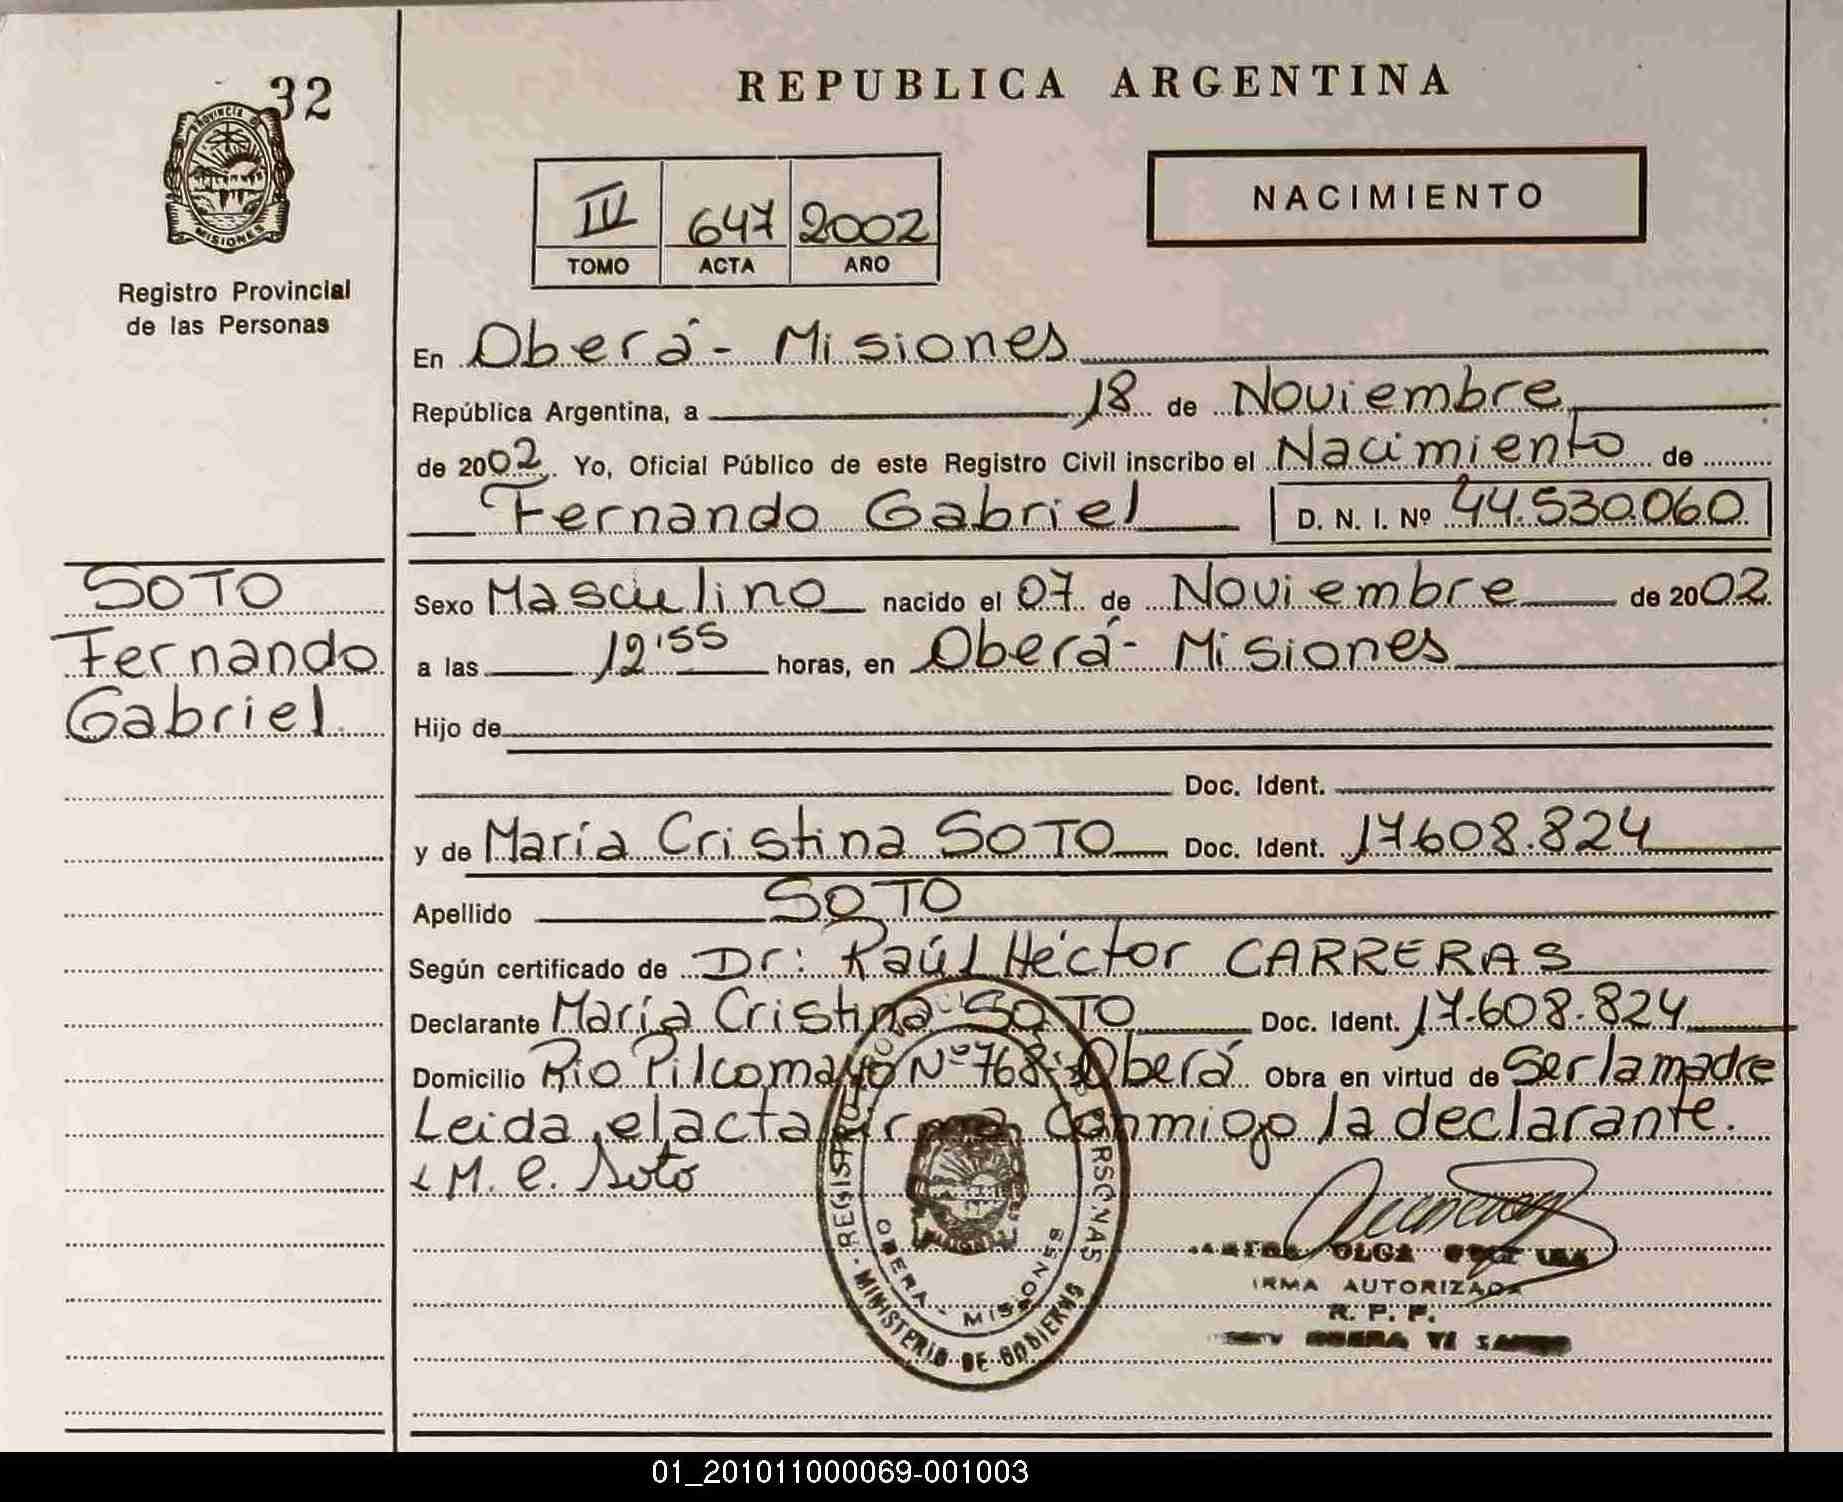 32
PROVINCIA D
MISIONES
Registro Provincial
de las Personas
REPUBLICA ARGENTINA
NACIMIENTO
IV 647 2002
TOMO ACTA AÑO
En Oberá - Misiones
República Argentina, a 18 de Noviembre
de 2002 Yo, Oficial Público de este Registro Civil inscribo el Nacimiento de
Fernando Gabriel D. N. I. Nº 44.530.060
SOTO
Fernando
Gabriel
Sexo Masculino nacido el 07 de Noviembre de 2002
a las 12'55 horas, en Oberá - Misiones
Hijo de
Doc. Ident.
y de María Cristina SOTO Doc. Ident. 17.608.824
Apellido SOTO
Según certificado de Dr: Raúl Héctor CARRERAS
Declarante María Cristina SOTO Doc. Ident. 17.608.824
Domicilio Rio Pilcomayo Nº 768 - Oberá Obra en virtud de Ser la madre
Leida el acta firma conmigo la declarante.
M. C. Soto
OBERA - MISIONES
MINISTERIO DE GOBIERNO
OLGA
IRMA AUTORIZADA
R. P. P.
01_201011000069-001003